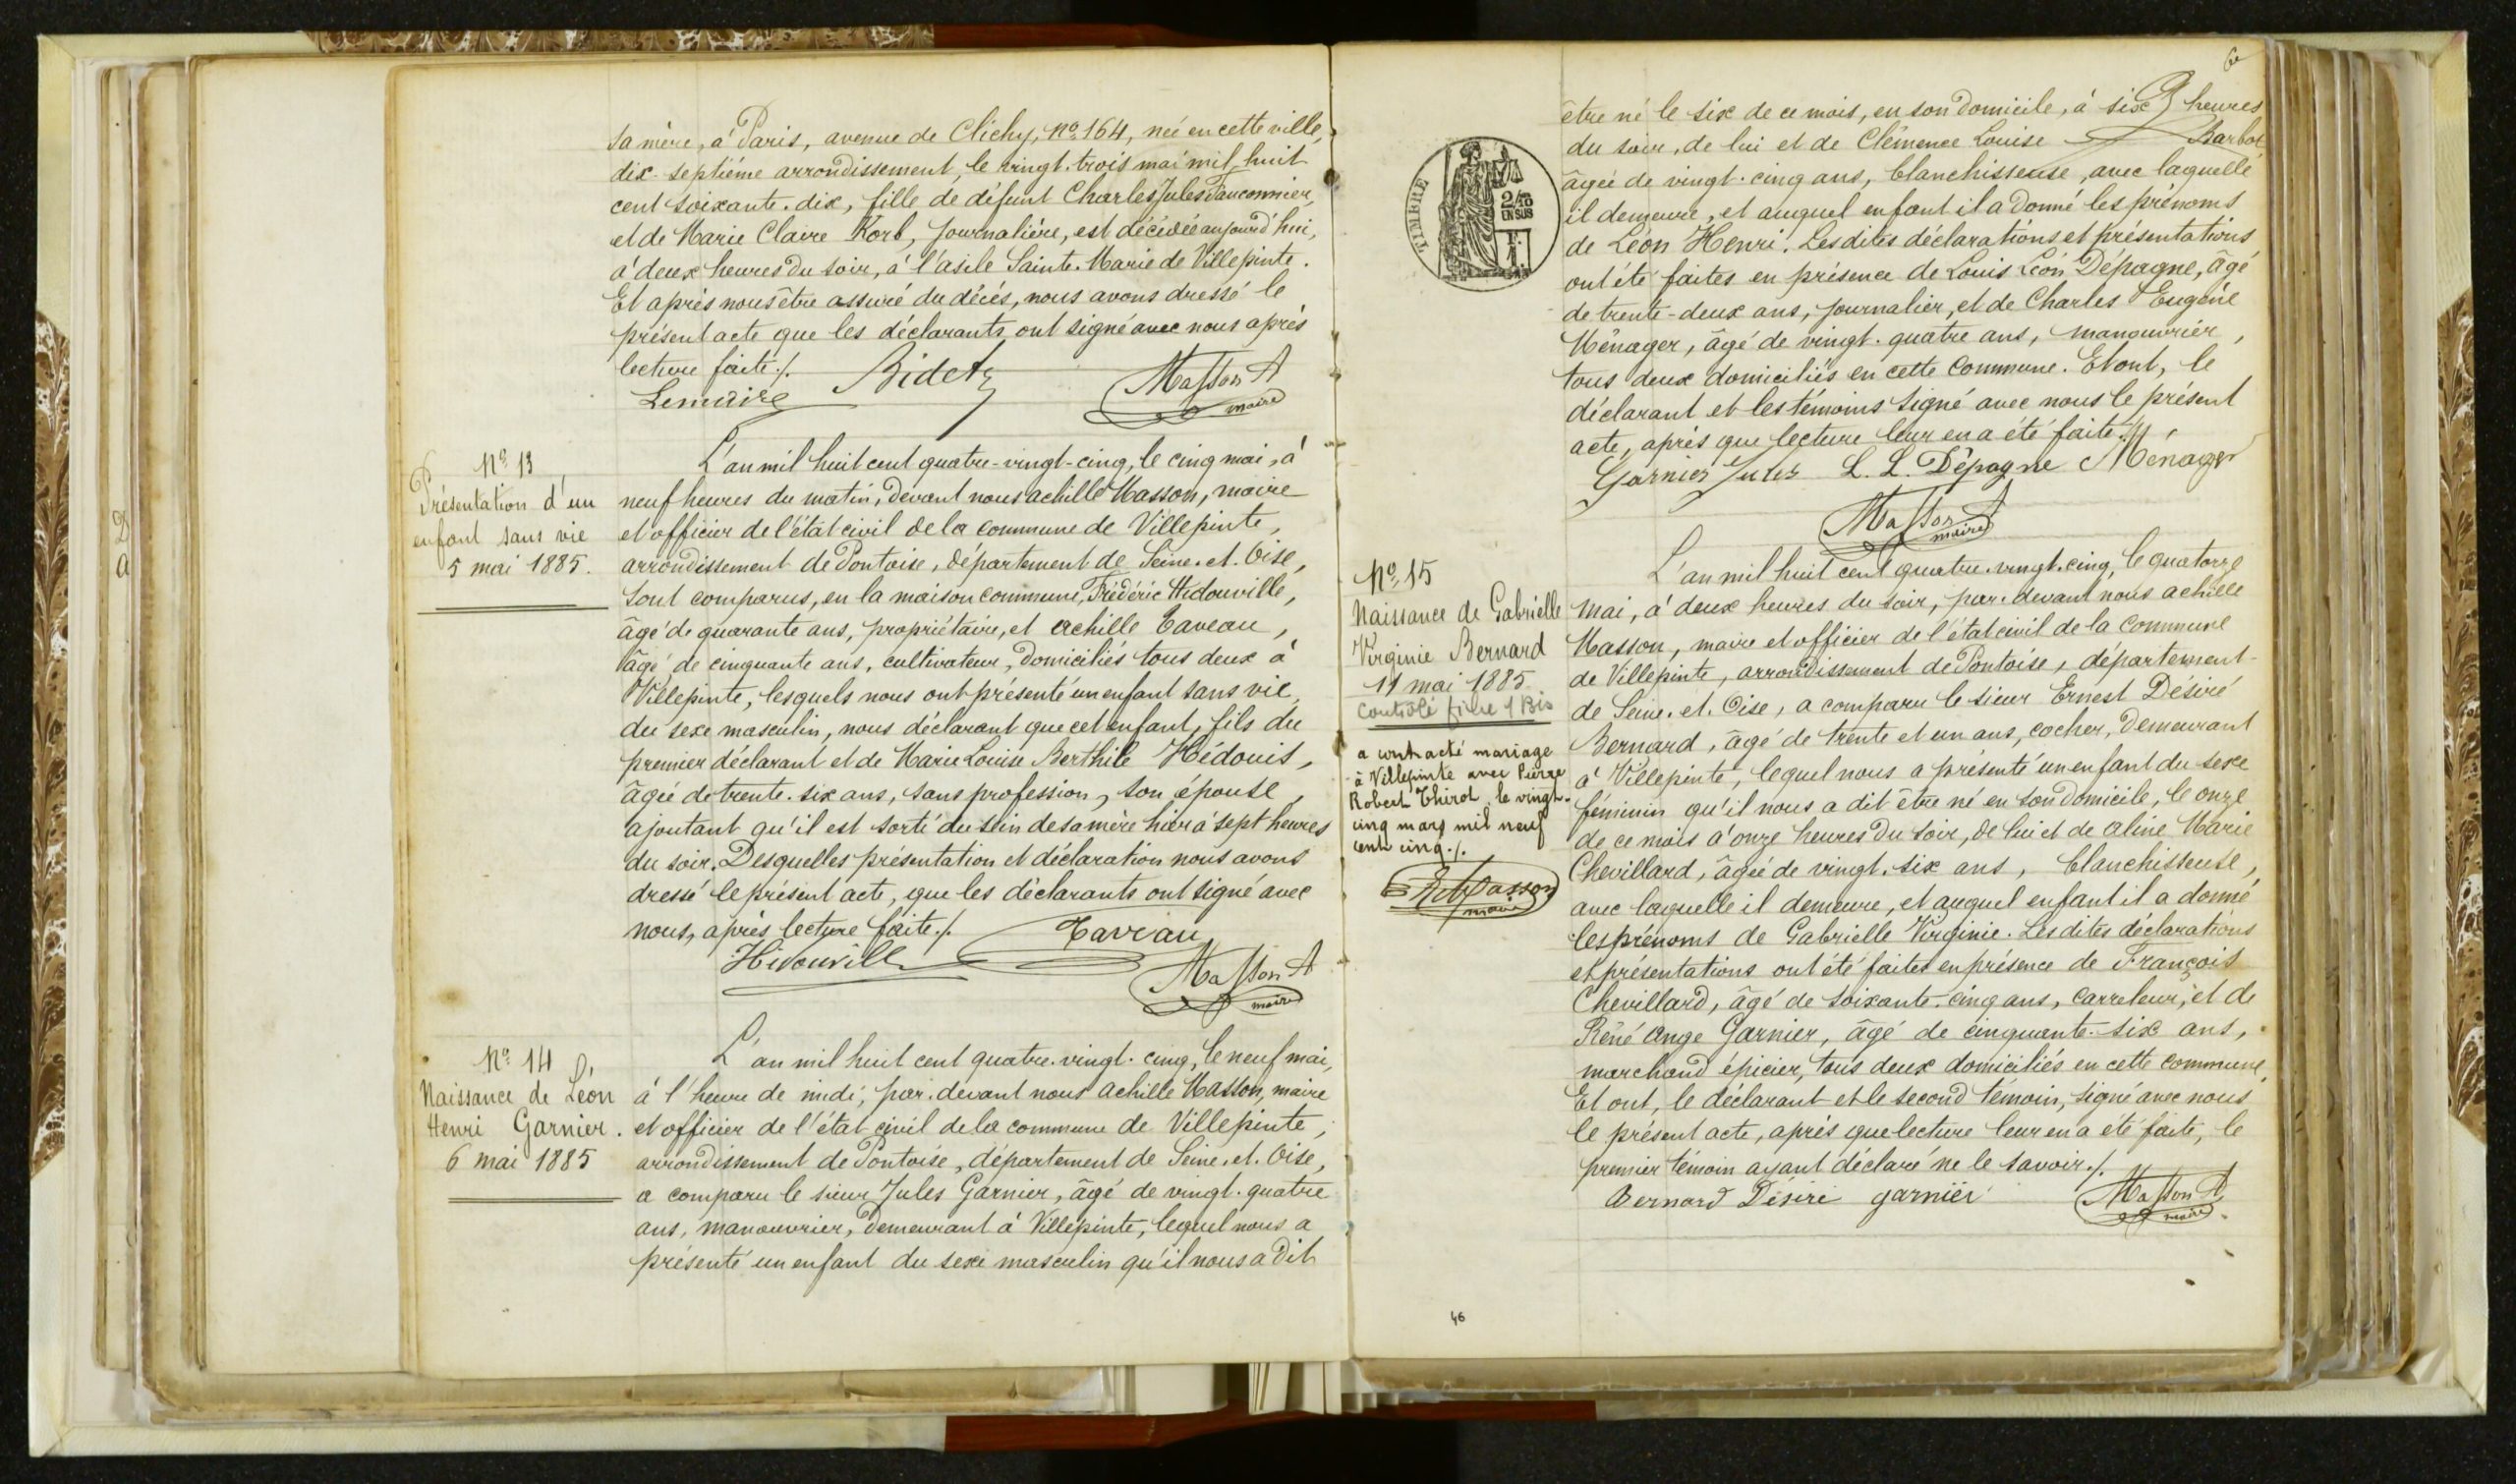 sa mère, à Paris, avenue de Clichy, No 164, née en cette ville,
dix-septième arrondissement, le vingt-trois mai mil huit
cent soixante-dix, fille de défunt Charles Jules Fauconnier,
et de Marie Claire Korb, journalière, est décédée aujourd'hui,
à deux heures du soir, à l'asile Sainte-Marie de Villepinte.
Et après nous être assuré du décès, nous avons dressé le
présent acte que les déclarants ont signé avec nous après
lecture faite ./.
Bidet
Masson A
Lemaire
maire
No 13
Présentation d'un
enfant sans vie
5 mai 1885.
D
A
L'an mil huit cent quatre-vingt-cinq, le cinq mai, à
neuf heures du matin, devant nous achille Masson, maire
et officier de l'état civil de la commune de Villepinte,
arrondissement de Pontoise, département de Seine-et-Oise,
sont comparus, en la maison commune, Frédéric Hidouville,
âgé de quarante ans, propriétaire, et achille Taveau,
âgé de cinquante ans, cultivateur, domiciliés tous deux à
Villepinte, lesquels nous ont présenté un enfant sans vie,
du sexe masculin, nous déclarant que cet enfant, fils du
premier déclarant et de Marie Louise Berthile Hédouis,
âgée de trente-six ans, sans profession, son épouse,
ajoutant qu'il est sorti du sein de sa mère hier à sept heures
du soir. Desquelles présentation et déclaration nous avons
dressé le présent acte, que les déclarants ont signé avec
nous, après lecture faite ./.
Taveau
Hidouville
Masson A
maire
No 14
Naissance de Léon
Henri Garnier.
6 mai 1885
L'an mil huit cent quatre-vingt-cinq, le neuf mai,
à l'heure de midi, par-devant nous achille Masson, maire
et officier de l'état civil de la commune de Villepinte,
arrondissement de Pontoise, département de Seine-et-Oise,
a comparu le sieur Jules Garnier, âgé de vingt-quatre
ans, manouvrier, demeurant à Villepinte, lequel nous a
présenté un enfant du sexe masculin qu'il nous a dit
être né le six de ce mois, en son domicile, à six heures
du soir, de lui et de Clémence Louise Barbot
âgée de vingt-cinq ans, blanchisseuse, avec laquelle
il demeure, et auquel enfant il a donné les prénoms
de Léon Henri. Lesdites déclarations et présentations
ont été faites en présence de Louis Léon Dépagne, âgé
de trente-deux ans, journalier, et de Charles Eugène
Ménager, âgé de vingt-quatre ans, manouvrier,
tous deux domiciliés en cette commune. Et ont, le
déclarant et les témoins signé avec nous le présent
acte, après que lecture leur en a été faite ./.
Garnier Jules L. L. Dépagne Ménager
Masson A
maire
TIMBRE
2/10
EN SUS
No 15
Naissance de Gabrielle
Virginie Bernard
11 mai 1885
Contrôlé fiche 1 Bis
a contracté mariage
à Villepinte avec Pierre
Robert Thirot, le vingt-
cinq mars mil neuf
cent cinq ./.
Masson
maire
L'an mil huit cent quatre-vingt-cinq, le quatorze
mai, à deux heures du soir, par-devant nous achille
Masson, maire et officier de l'état civil de la commune
de Villepinte, arrondissement de Pontoise, département
de Seine-et-Oise, a comparu le sieur Ernest Désiré
Bernard, âgé de trente et un ans, cocher, demeurant
à Villepinte, lequel nous a présenté un enfant du sexe
féminin qu'il nous a dit être né en son domicile, le onze
de ce mois à onze heures du soir, de lui et de aline Marie
Chevillard, âgée de vingt-six ans, blanchisseuse,
avec laquelle il demeure, et auquel enfant il a donné
les prénoms de Gabrielle Virginie. Lesdites déclarations
et présentations ont été faites en présence de François
Chevillard, âgé de soixante-cinq ans, carreleur, et de
Réné ange Garnier, âgé de cinquante-six ans,
marchand épicier, tous deux domiciliés en cette commune.
Et ont, le déclarant et le second témoin, signé avec nous
le présent acte, après que lecture leur en a été faite, le
premier témoin ayant déclaré ne le savoir ./.
Bernard Désiré garnier
Masson A
maire
46